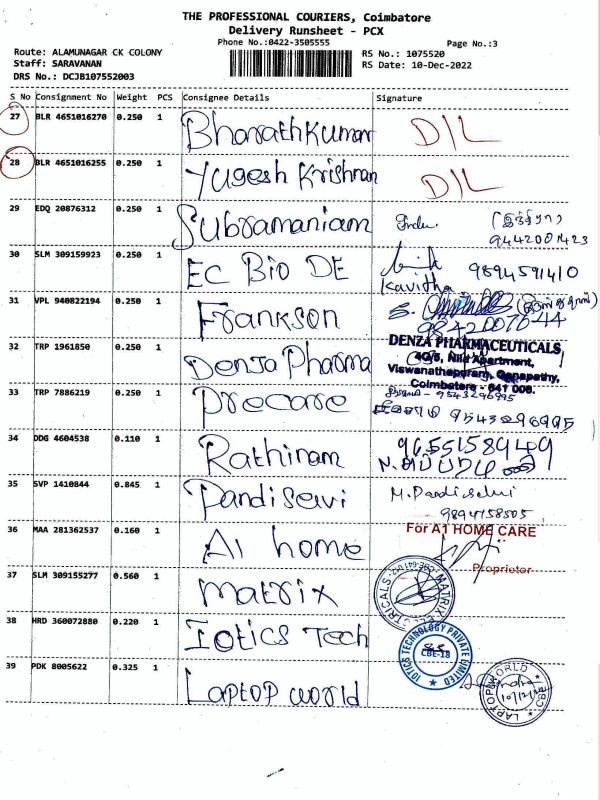 THE PROFESSIONAL COURIERS, Coimbatore
Delivery Runsheet - PCX
Phone No.:0422-3505555
Page No.:3
Route: ALAMUNAGAR CK COLONY
Staff: SARAVANAN
DRS No.: DCJB107552003
RS No.: 1075520
RS Date: 10-Dec-2022
S No Consignment No Weight PCS Consignee Details Signature
27 BLR 4651016270 0.250 1 Bharathkumar D/L
28 BLR 4651016255 0.250 1 Yugesh Krishnan D/L
29 EDQ 20876312 0.250 1 Subramaniam Indu (இந்திரா)
9442001423
30 SLM 309159923 0.250 1 EC Bio DE 9894591410
Kavitha
31 VPL 940822194 0.250 1 Frankson
9842007644
32 TRP 1961850 0.250 1 Denza Pharma DENZA PHARMACEUTICALS
Apartment,
Viswanathapuram, Ganapathy,
Coimbatore - 641 006.
33 TRP 7886219 0.250 1 Precare 9543296995
9543296995
34 DDG 4604538 0.110 1 Rathinam 9655158949
35 SVP 1410844 0.845 1 Pandiselvi M. Pandiselvi
9894758505
36 MAA 281362537 0.160 1 A1 home For A1 HOME CARE
Proprietor
37 SLM 309155277 0.560 1 Matrix MATRIX
38 HRD 360072880 0.220 1 Iotics Tech IOTICS TECHNOLOGY PRIVATE LIMITED
CBE-18
39 PDK 8005622 0.325 1 Laptop world LAPTOP WORLD
10/12/22
CBE